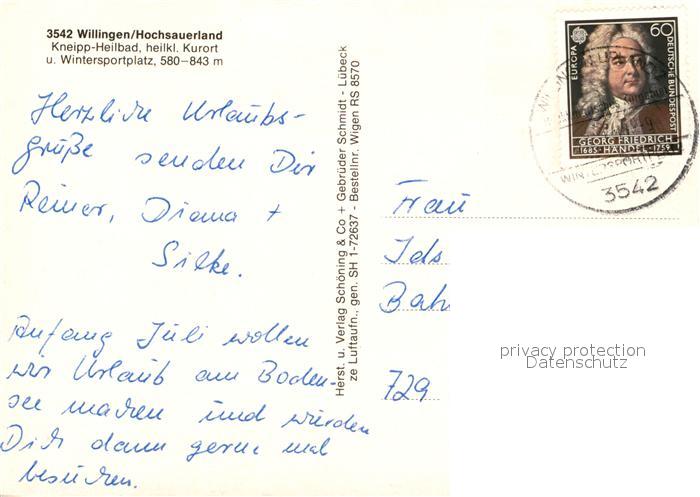 3542 Willingen/Hochsauerland
Kneipp-Heilbad, heilkl. Kurort
u. Wintersportplatz, 580–843 m
Herzliche Urlaubs-
grüße senden Dir
Reiner, Diana +
Silke.
Anfang Juli wollen
wir Urlaub am Boden-
see machen und würden
Dich dann gerne mal
besuchen.
Herst. u. Verlag Schöning & Co + Gebrüder Schmidt - Lübeck
ze Luftaufn., gen. SH 1-72637 - Bestellnr. Wigen RS 8570
EUROPA
60
DEUTSCHE BUNDESPOST
GEORG FRIEDRICH
1685-HÄNDEL-1759
WINTERSPORT
3542
Frau
Ids
Bah
729
privacy protection
Datenschutz